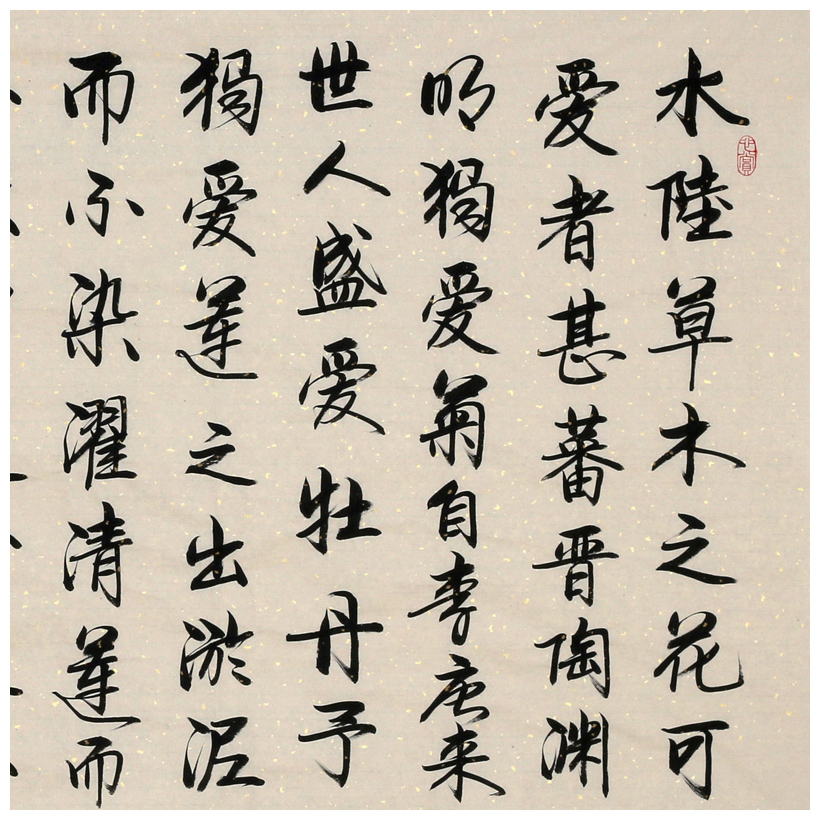 水陸草木之花可
爱者甚蕃晋陶渊
明獨爱菊自李唐来
世人盛爱牡丹予
獨爱莲之出淤泥
而不染濯清莲而